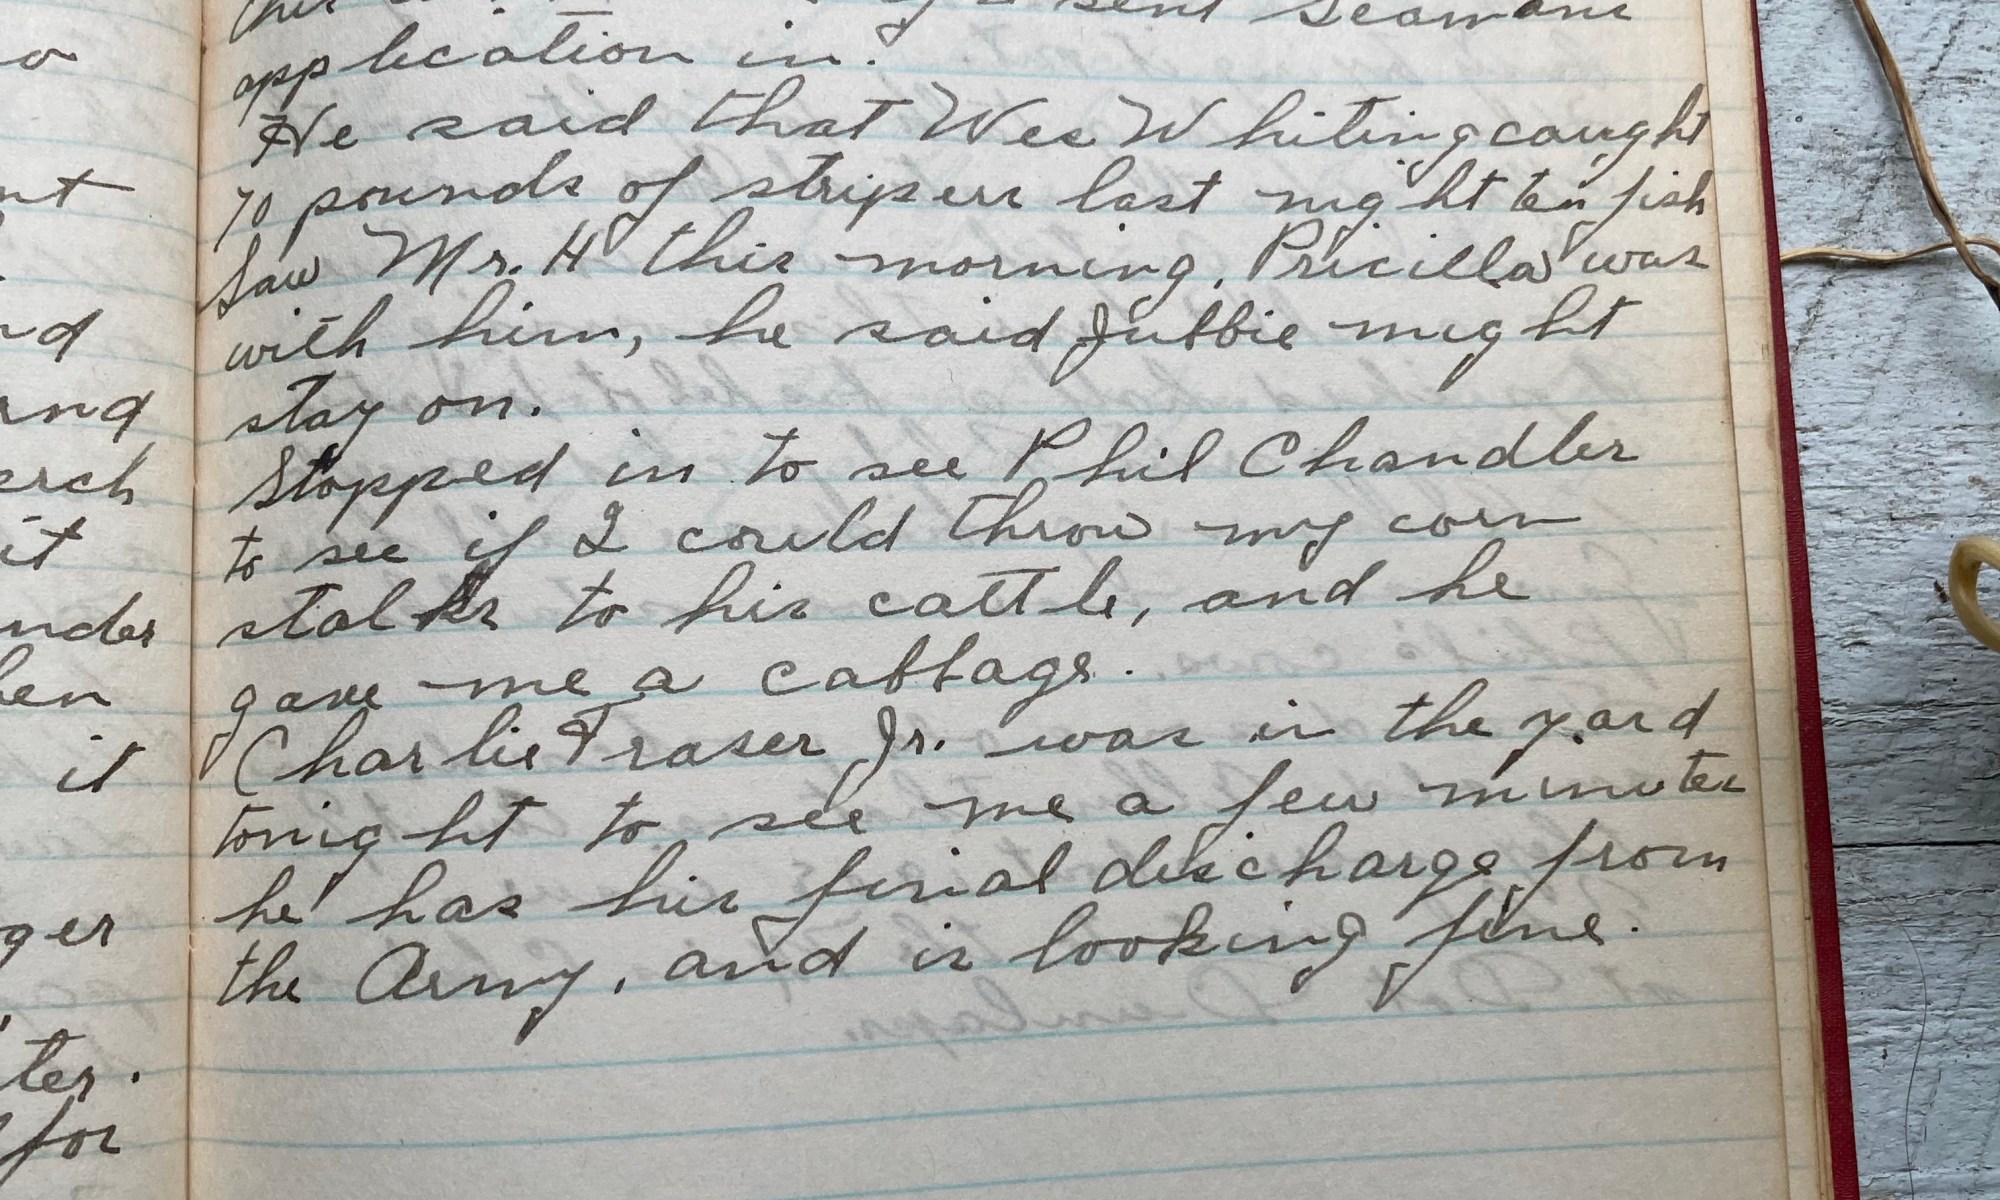 sent Seamans
application in.
He said that Wes Whiting caught
70 pounds of stripers last night ten fish
Saw Mr. H this morning, Pricilla was
with him, he said Jubbie might
stay on.
Stopped in to see Phil Chandler
to see if I could throw my corn
stalks to his cattle, and he
gave me a cabbage.
Charlie Fraser Jr. was in the yard
tonight to see me a few minutes
he has his final discharge from
the Army, and is looking fine.
it
for